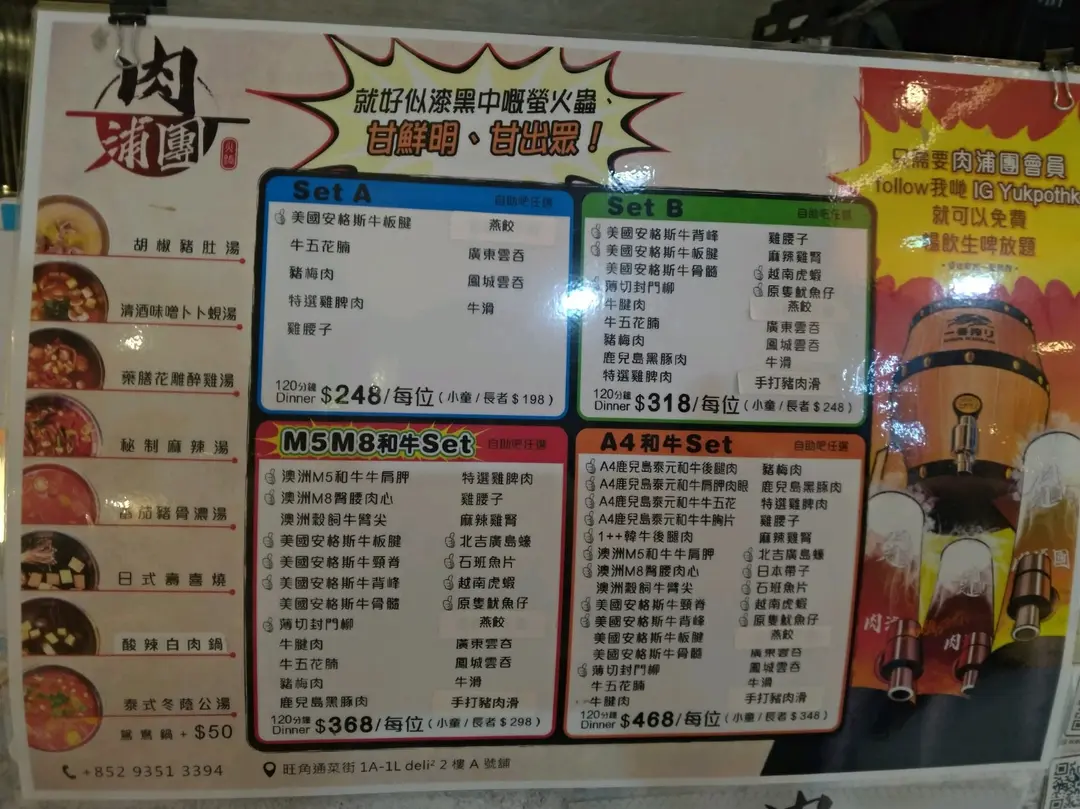 肉
浦團
火鍋
就好似漆黑中嘅螢火蟲、
甘鮮明、甘出眾！
胡椒豬肚湯
清酒味噌卜卜蜆湯
藥膳花雕醉雞湯
秘制麻辣湯
番茄豬骨濃湯
日式壽喜燒
酸辣白肉鍋
泰式冬蔭公湯
鴛鴦鍋 + $50
+852 9351 3394
旺角通菜街 1A-1L deli² 2 樓 A 號舖
Set A 自助吧任選
美國安格斯牛板腱
牛五花腩
豬梅肉
特選雞脾肉
雞腰子
燕餃
廣東雲吞
鳳城雲吞
牛滑
120分鐘
Dinner $248/每位 (小童/長者 $198)
Set B 自助吧任選
美國安格斯牛背峰
美國安格斯牛板腱
美國安格斯牛骨髓
薄切封門柳
牛腱肉
牛五花腩
豬梅肉
鹿兒島黑豚肉
特選雞脾肉
雞腰子
麻辣雞腎
越南虎蝦
原隻魷魚仔
燕餃
廣東雲吞
鳳城雲吞
牛滑
手打豬肉滑
120分鐘
Dinner $318/每位 (小童/長者 $248)
M5M8和牛Set 自助吧任選
澳洲M5和牛牛肩胛
澳洲M8臀腰肉心
澳洲穀飼牛臂尖
美國安格斯牛板腱
美國安格斯牛頸脊
美國安格斯牛背峰
美國安格斯牛骨髓
薄切封門柳
牛腱肉
牛五花腩
豬梅肉
鹿兒島黑豚肉
特選雞脾肉
雞腰子
麻辣雞腎
北吉廣島蠔
石班魚片
越南虎蝦
原隻魷魚仔
燕餃
廣東雲吞
鳳城雲吞
牛滑
手打豬肉滑
120分鐘
Dinner $368/每位 (小童/長者 $298)
A4和牛Set 自助吧任選
A4鹿兒島泰元和牛後腿肉
A4鹿兒島泰元和牛肩胛肉眼
A4鹿兒島泰元和牛牛五花
A4鹿兒島泰元和牛牛胸片
1++韓牛後腿肉
澳洲M5和牛牛肩胛
澳洲M8臀腰肉心
澳洲穀飼牛臂尖
美國安格斯牛頸脊
美國安格斯牛背峰
美國安格斯牛板腱
美國安格斯牛骨髓
薄切封門柳
牛五花腩
牛腱肉
豬梅肉
鹿兒島黑豚肉
特選雞脾肉
雞腰子
麻辣雞腎
北吉廣島蠔
日本帶子
石班魚片
越南虎蝦
原隻魷魚仔
燕餃
廣東雲吞
鳳城雲吞
牛滑
手打豬肉滑
120分鐘
Dinner $468/每位 (小童/長者 $348)
只需要肉浦團會員
follow我哋 IG Yukpothk
就可以免費
暢飲生啤放題
一番搾り